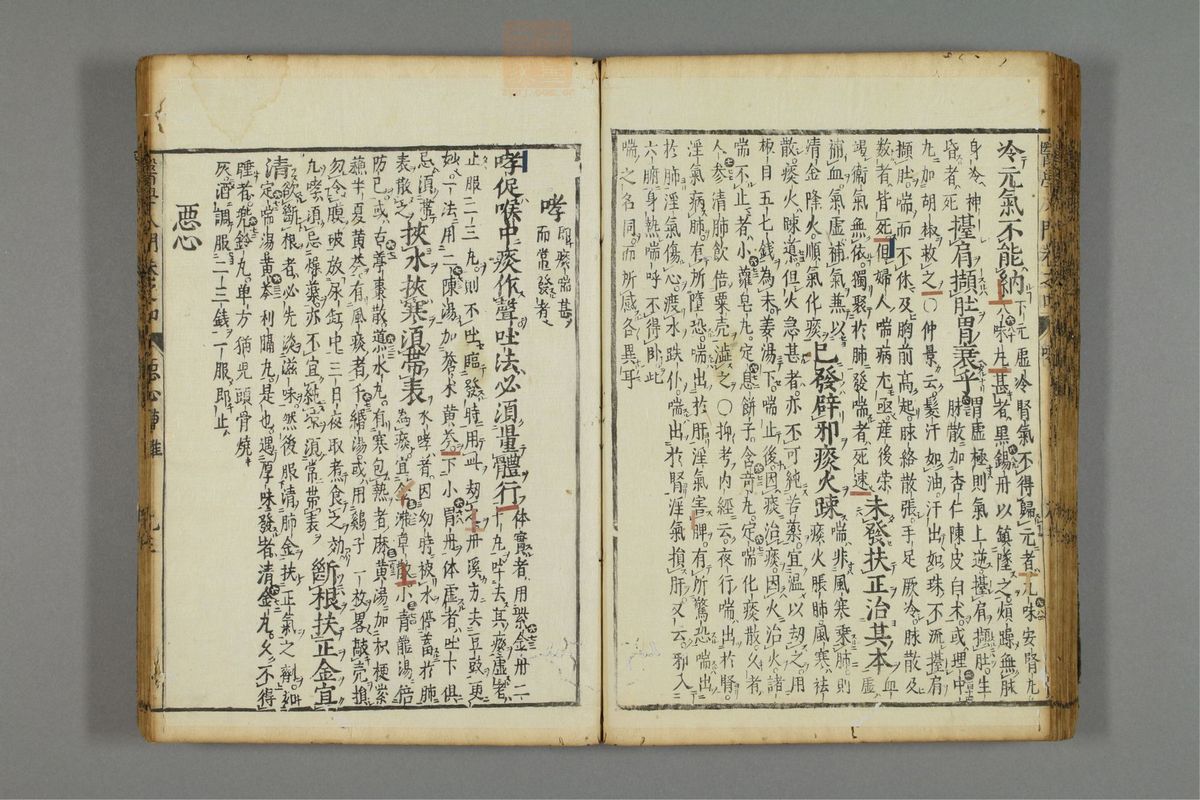 冷元氣不能納下元虛冷腎氣不得歸元者九味安腎丸
八味丸甚者黑錫丹以鎮墜之煩躁無脉
身冷神
昏者死擡肩擷肚胃衰乎謂虛極則氣上逆擡肩擷肚生
脉散加杏仁陳皮白朮或理中
丸加胡椒救之〇仲景云髮汗如油汗出如珠不流擡肩
擷肚喘而不休及胸前高起脉絡散張手足厥冷脉散及
數者皆死但婦人喘病尤亟產後榮
竭衛氣無依獨聚於肺發喘者死速未發扶正治其本虛
補血氣虛補氣兼以
清金降火順氣化痰已發辟邪痰火疎喘非風寒乘肺則
痰火脹肺風寒祛
散痰火疎導但火急甚者亦不可純苦藥宜溫以劫之用
椒目五七錢為末姜湯下喘止後因痰治痰因火治火諸
喘不止者小蘿皂丸定息餅子含奇丸定喘化痰散久者
人參清肺飲倍粟壳澁之〇抑考內經云夜行喘出於腎
淫氣病肺有所墮恐喘出於肝淫氣害脾有所驚恐喘出
於肺淫氣傷心渡水跌仆喘出於腎淫氣損肝又云邪入
六腑身熱喘呼不得卧此
喘之名同而所感各異耳
哮即痰喘甚
而常發者
哮促喉中痰作聲吐法必須量體行体實者用紫金丹二
十丸吐去其痰虛者
止服二三丸則不吐臨發時用此劫之丹溪方去豆豉更
妙一法用二陳湯加蒼朮黃芩下小胃丹体虛者吐下俱
忌須帶
表散之挾水挾寒須帶表水哮者因幼時被水停蓄於肺
為痰宜
防已或古葶棗散導水丸有寒包熱者麻黃湯加枳梗紫
蘇半夏黃芩有風痰者千緡湯或用鷄子一枚畧敲壳損
勿令膜破放尿缸中三日夜取煮食之効
凡哮須忌燥藥亦不宜純凉須常帶表斷根扶正金宜
清欲斷根者必先淡滋味然後服清肺金扶正氣之劑如
定喘湯黃芩利膈丸是也遇厚味發者清金丸久不得
睡者兜鈴丸单方猫兒頭骨燒
灰酒調服二三錢一服即止
惡心